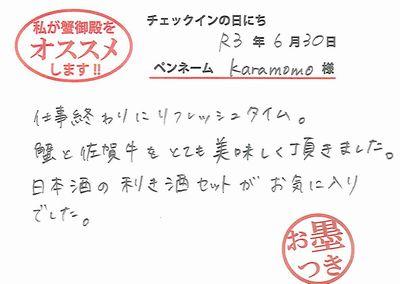 私が蟹御殿を
オススメ
します!!
チェックインの日にち
R3 年 6 月 30 日
ペンネーム karamomo 様
仕事終わりにリフレッシュタイム。
蟹と佐賀牛をとても美味しく頂きました。
日本酒の利き酒セットがお気に入り
でした。
お墨
つき